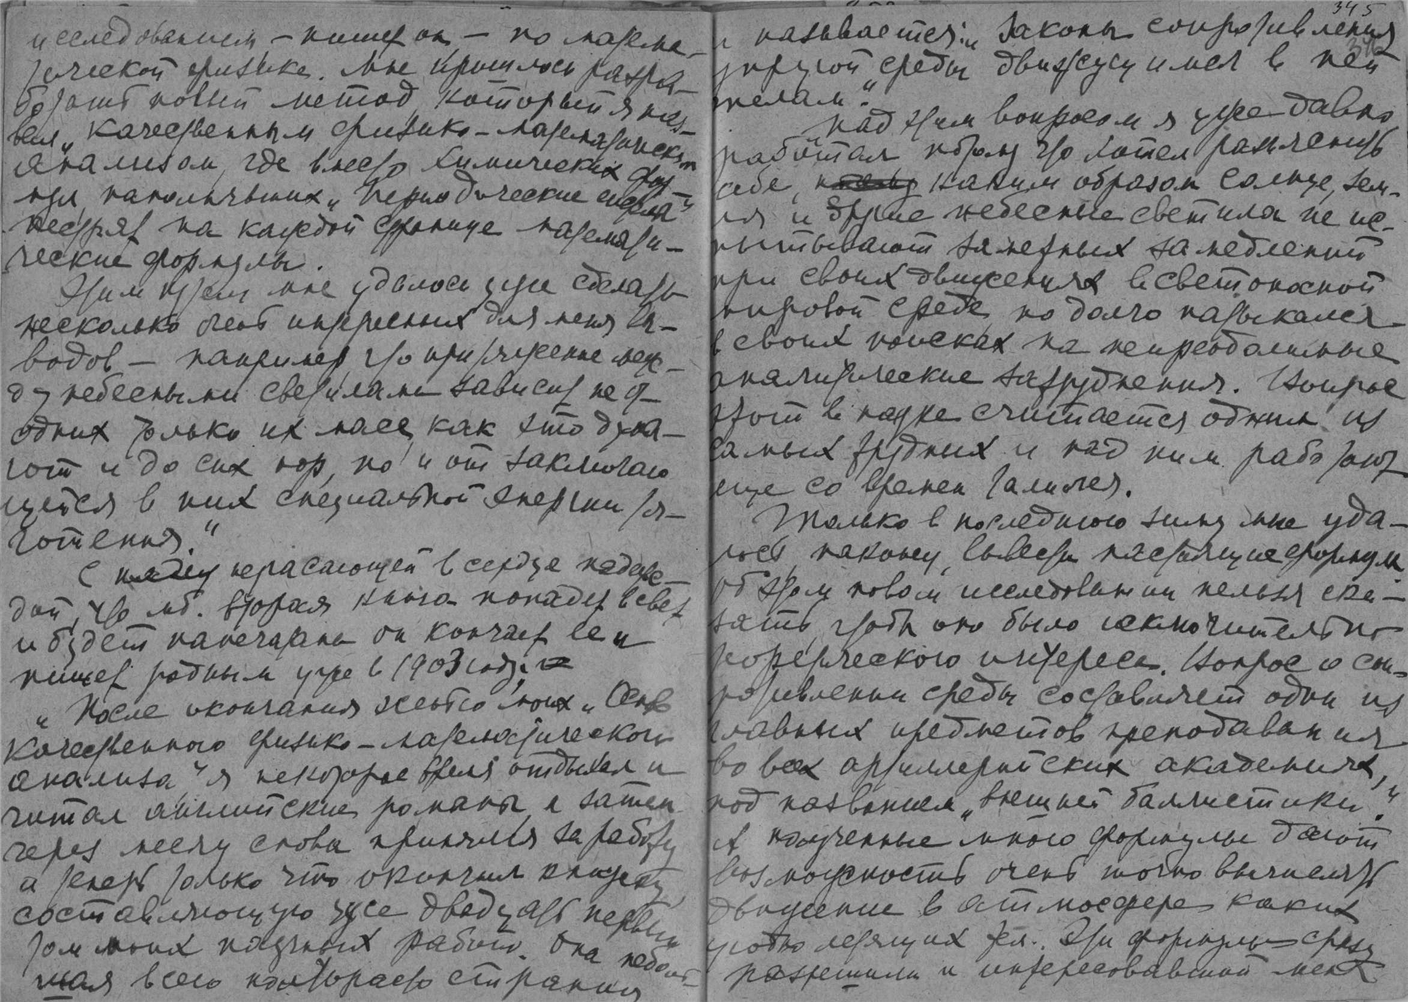 исследованием – пишет он – по матема-
тической физике. Мне пришлось разра-
ботать новый метод, который я наз-
вал „качественным физико-математическим
анализом, где вместо химических фор-
мул, наполнявших „Периодические системы"
пестрят на каждой странице математи-
ческие формулы.
Этим путем мне удалось уже сделать
несколько очень интересных для меня вы-
водов – например что притяжение меж-
ду небесными светилами зависит не от
одних только их масс, как это дума-
ют и до сих пор, но и от заключаю
щейся в них специальной энергии тя-
готения."
С негасающей в сердце надеж-
дой, что мб. вторая книга попадет в свет
и будет напечатана он кончает ее и
пишет родным уже в 1903 году:
„После окончания этих моих „Основ
качественного физико-математического
анализа" я некоторое время отдыхал и
читал английские романы, а затем
через месяц снова принялся за работу
и теперь только что окончил книжку,
составляющую уже двадцать первый
том моих научных работ. Она неболь-
шая всего полтораста страниц
345
346
и называется: „Законы сопротивления
упругой среды движущимся в ней
телам".
Над этим вопросом я уже давно
работал потому что хотел разъяснить
себе, каким образом солнце, зем-
ля и другие небесные светила не ис-
пытывают заметных замедлений
при своих движениях в светоносной
мировой среде, но долго натыкался
в своих поисках на непреодолимые
аналитические затруднения. Вопрос
этот в науке считается одним из
самых трудных и над ним работают
еще со времен Галилея.
Только в последнюю зиму мне уда-
лось, наконец, вывести настоящие формулы.
Об этом новом исследовании нельзя ска-
зать, чтобы оно было исключительно
теоретического интереса. Вопрос о соп-
ротивлении среды составляет один из
главных предметов преподавания
во всех артиллерийских академиях,
под названием „внешней баллистики."
А полученные мною формулы дают
возможность очень точно вычислять
движение в атмосфере каких
угодно летящих тел. Эти формулы сразу
разрешили и интересовавший меня